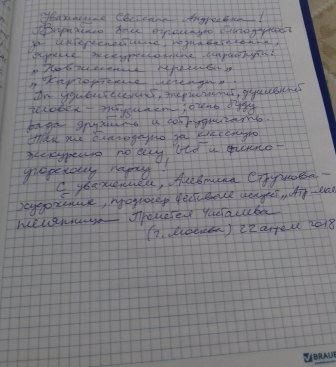 Уважаемая Светлана Андреевна!
Выражаю Вам огромную благодарность
за интереснейшие, познавательные,
яркие экскурсионные маршруты:
"
"Каргортские легенды".
Вы удивительный, энергичный, душевный
человек - энтузиаст; очень буду
рада дружить и сотрудничать.
Так же благодарю за классную
экскурсию по селу "Ыб" и финно-
угорскому парку!
С уважением, Алевтина Стручкова -
художник, продюсер фестиваля искусств "Арт-
Прометея Чисталева
(г. Москва) 22 апреля 2018
BRAUBE